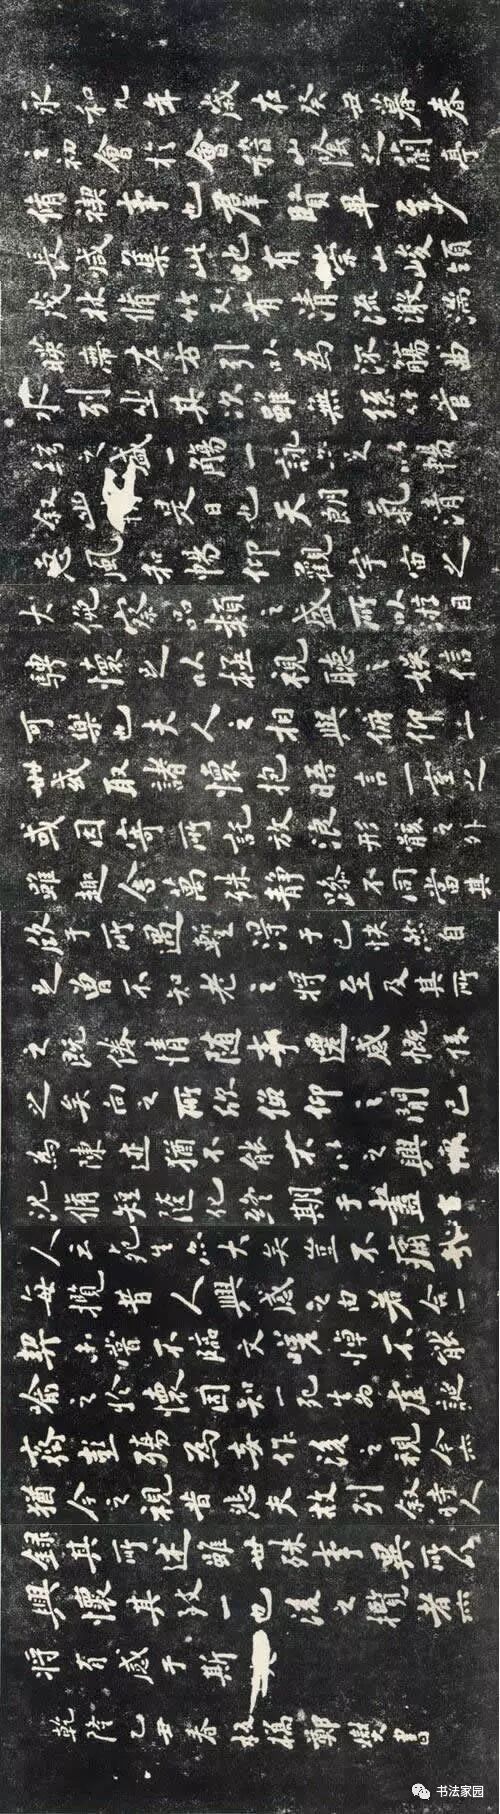 永和九年歲在癸丑暮春
之初會於會稽山陰之蘭亭
脩禊事也羣賢畢至少
長咸集此地有崇山峻領
茂林脩竹又有清流激湍
暎帶左右引以為流觴曲
水列坐其次雖無絲竹管
絃之盛一觴一詠亦足以暢
叙幽是日也天朗氣清
惠風和暢仰觀宇宙之
大俛察品類之盛所以遊目
騁懷足以極視聽之娛信
可樂也夫人之相與俯仰一
世或取諸懷抱晤言一室之
或因寄所託放浪形骸之外
雖趣舍萬殊靜躁不同當其
欣于所遇蹔得于己快然自
足曾不知老之將至及其所
之既倦情随事遷感慨係
之矣向之所欣俛仰之間已
為陳迹猶不能不以之興
况脩短随化終期于盡
人云死生亦大矣豈不痛
每攬昔人興感之由若合一
契未嘗不臨文嗟悼不能
喻之於懷固知一死生為虛誕
齊彭殤為妄作後之視今亦
猶今之視昔悲夫故列叙時人
錄其所述雖世殊事異所以
興懷其致一也後之攬者亦
將有感于斯
乾隆乙丑春板橋鄭燮書
书法家园